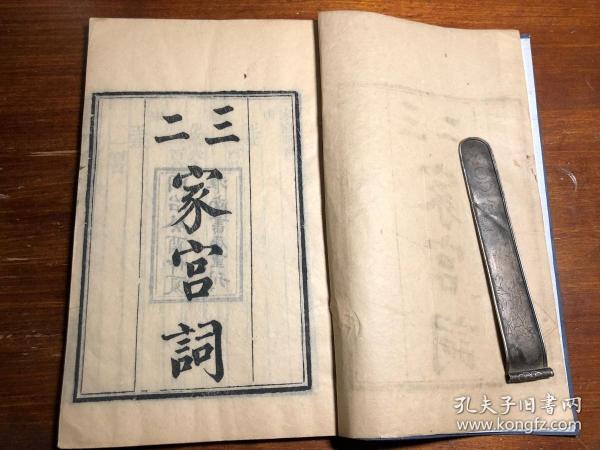 三二
家宫詞
孔夫子旧書网
www.kongfz.com